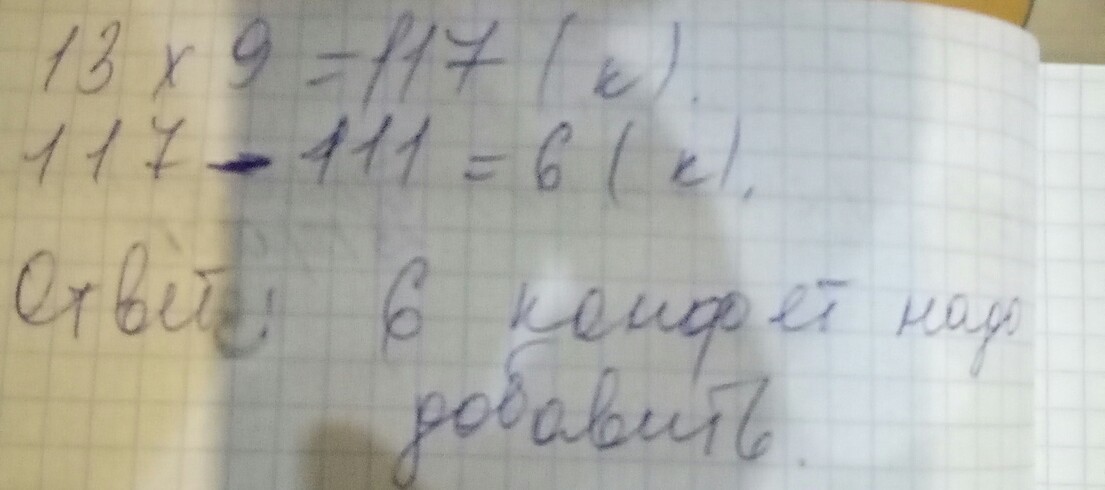 13 х 9 = 117 (к).
117 - 111 = 6 (к).
Ответ: 6 конфет надо
добавить.